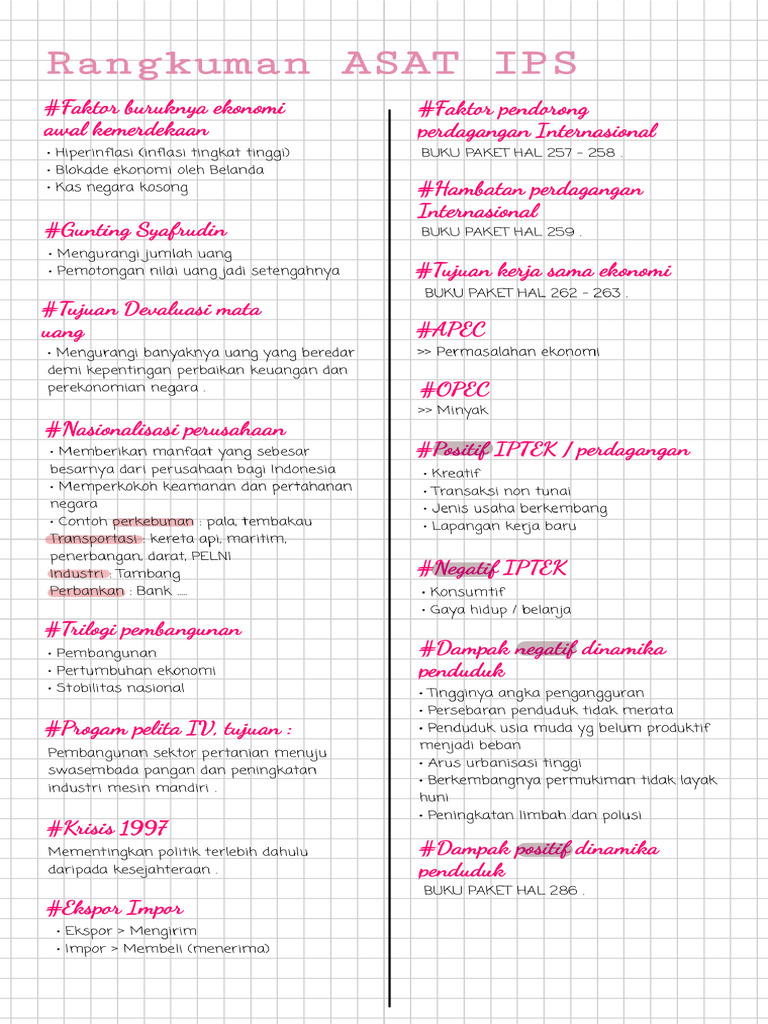 Rangkuman ASAT IPS
#Faktor buruknya ekonomi
awal kemerdekaan
• Hiperinflasi (inflasi tingkat tinggi)
• Blokade ekonomi oleh Belanda
• Kas negara kosong
#Gunting Syafrudin
• Mengurangi jumlah uang
• Pemotongan nilai uang jadi setengahnya
#Tujuan Devaluasi mata
uang
• Mengurangi banyaknya uang yang beredar
demi kepentingan perbaikan keuangan dan
perekonomian negara .
#Nasionalisasi perusahaan
• Memberikan manfaat yang sebesar
besarnya dari perusahaan bagi Indonesia
• Memperkokoh keamanan dan pertahanan
negara
• Contoh perkebunan : pala, tembakau
Transportasi : kereta api, maritim,
penerbangan, darat, PELNI
Industri : Tambang
Perbankan : Bank .....
#Trilogi pembangunan
• Pembangunan
• Pertumbuhan ekonomi
• Stobilitas nasional
#Progam pelita IV, tujuan :
Pembangunan sektor pertanian menuju
swasembada pangan dan peningkatan
industri mesin mandiri .
#Krisis 1997
Mementingkan politik terlebih dahulu
daripada kesejahteraan .
#Ekspor Impor
• Ekspor > Mengirim
• Impor > Membeli (menerima)
#Faktor pendorong
perdagangan Internasional
BUKU PAKET HAL 257 - 258 .
#Hambatan perdagangan
Internasional
BUKU PAKET HAL 259 .
#Tujuan kerja sama ekonomi
BUKU PAKET HAL 262 - 263 .
#APEC
>> Permasalahan ekonomi
#OPEC
>> Minyak
#Positif IPTEK / perdagangan
• Kreatif
• Transaksi non tunai
• Jenis usaha berkembang
• Lapangan kerja baru
#Negatif IPTEK
• Konsumtif
• Gaya hidup / belanja
#Dampak negatif dinamika
penduduk
• Tingginya angka pengangguran
• Persebaran penduduk tidak merata
• Penduduk usia muda yg belum produktif
menjadi beban
• Arus urbanisasi tinggi
• Berkembangnya permukiman tidak layak
huni
• Peningkatan limbah dan polusi
#Dampak positif dinamika
penduduk
BUKU PAKET HAL 286 .